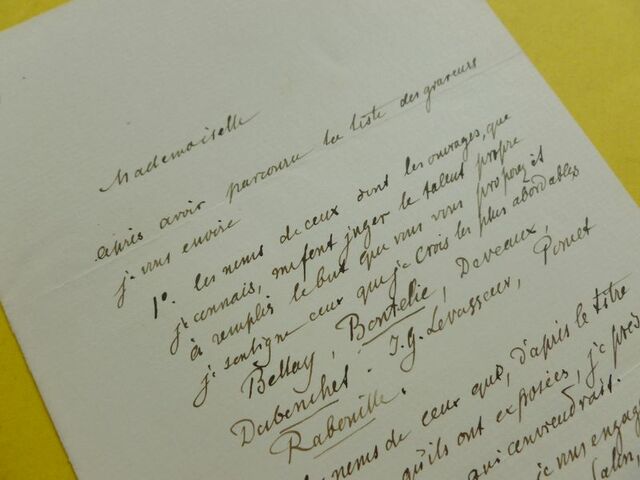 Mademoiselle
après avoir parcouru la liste des graveurs
je vous envoie
1°. les noms de ceux dont les ouvrages, que
je connais, me font juger le talent propre
à remplir le but que vous vous proposez et
je souligne ceux que je crois les plus abordables
Bellay, Bontelie, Deveaux,
Dubouchet - J. G. Levasseur, Pomet
Rabouille.
les noms de ceux que, d'après le titre
qu'ils ont exposées, je
qui conviendrait.
je vous engage
Salon,